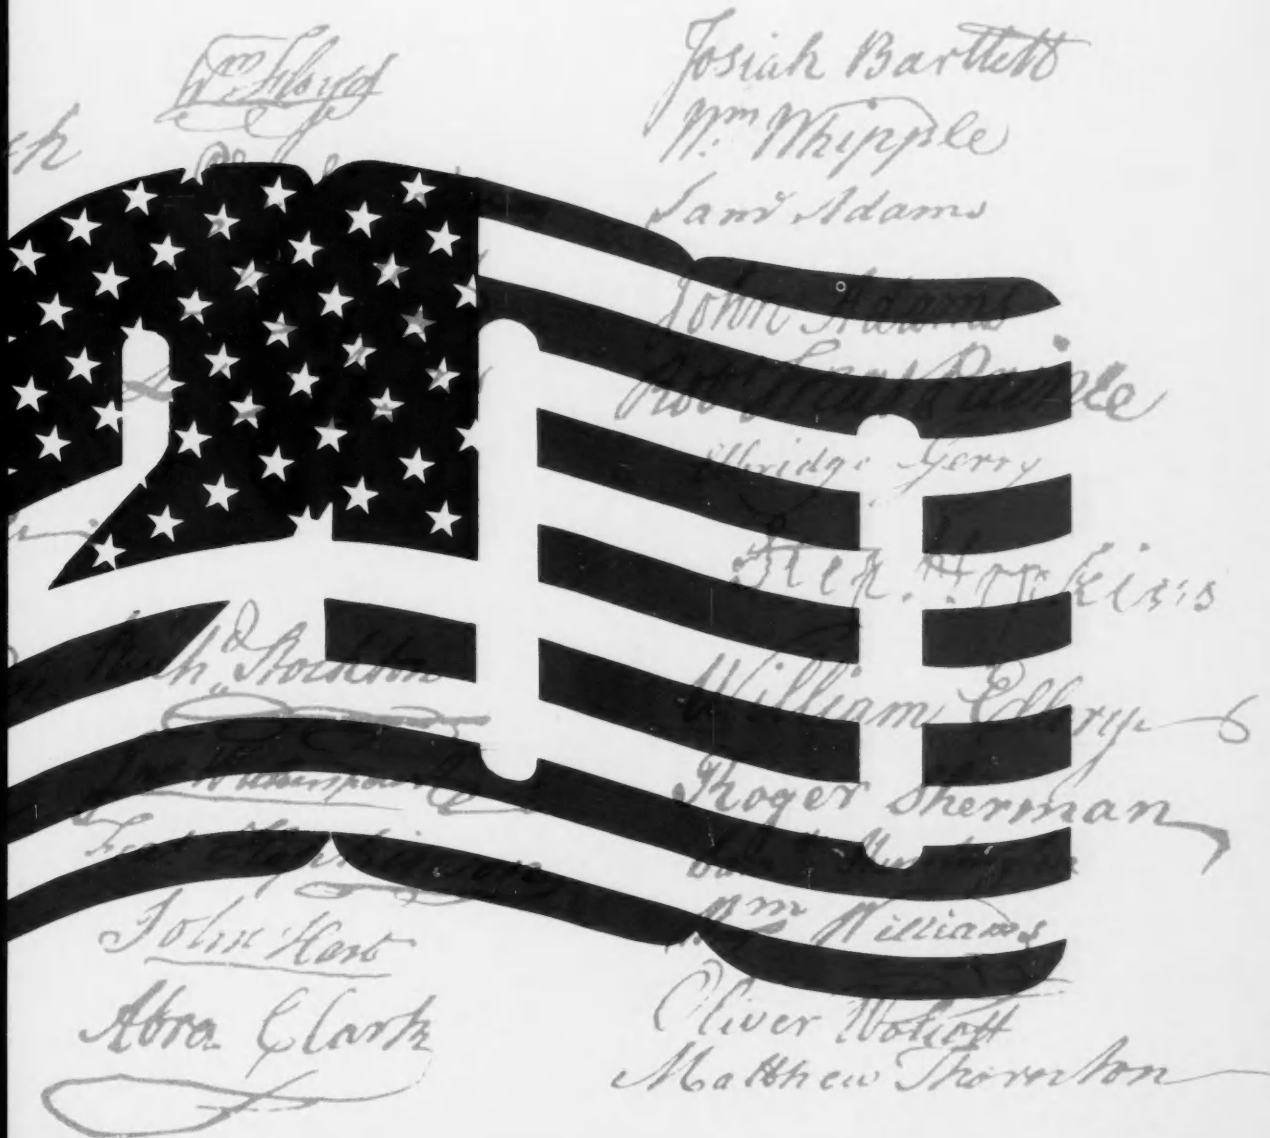 Wm Floyd
Richd. Stockton
Jno Witherspoon
Fras. Hopkinson
John Hart
Abra Clark
Josiah Bartlett
Wm. Whipple
Saml Adams
John Adams
Robt Treat Paine
Elbridge Gerry
Step. Hopkins
William Ellery
Roger Sherman
Wm. Williams
Oliver Wolcott
Matthew Thornton